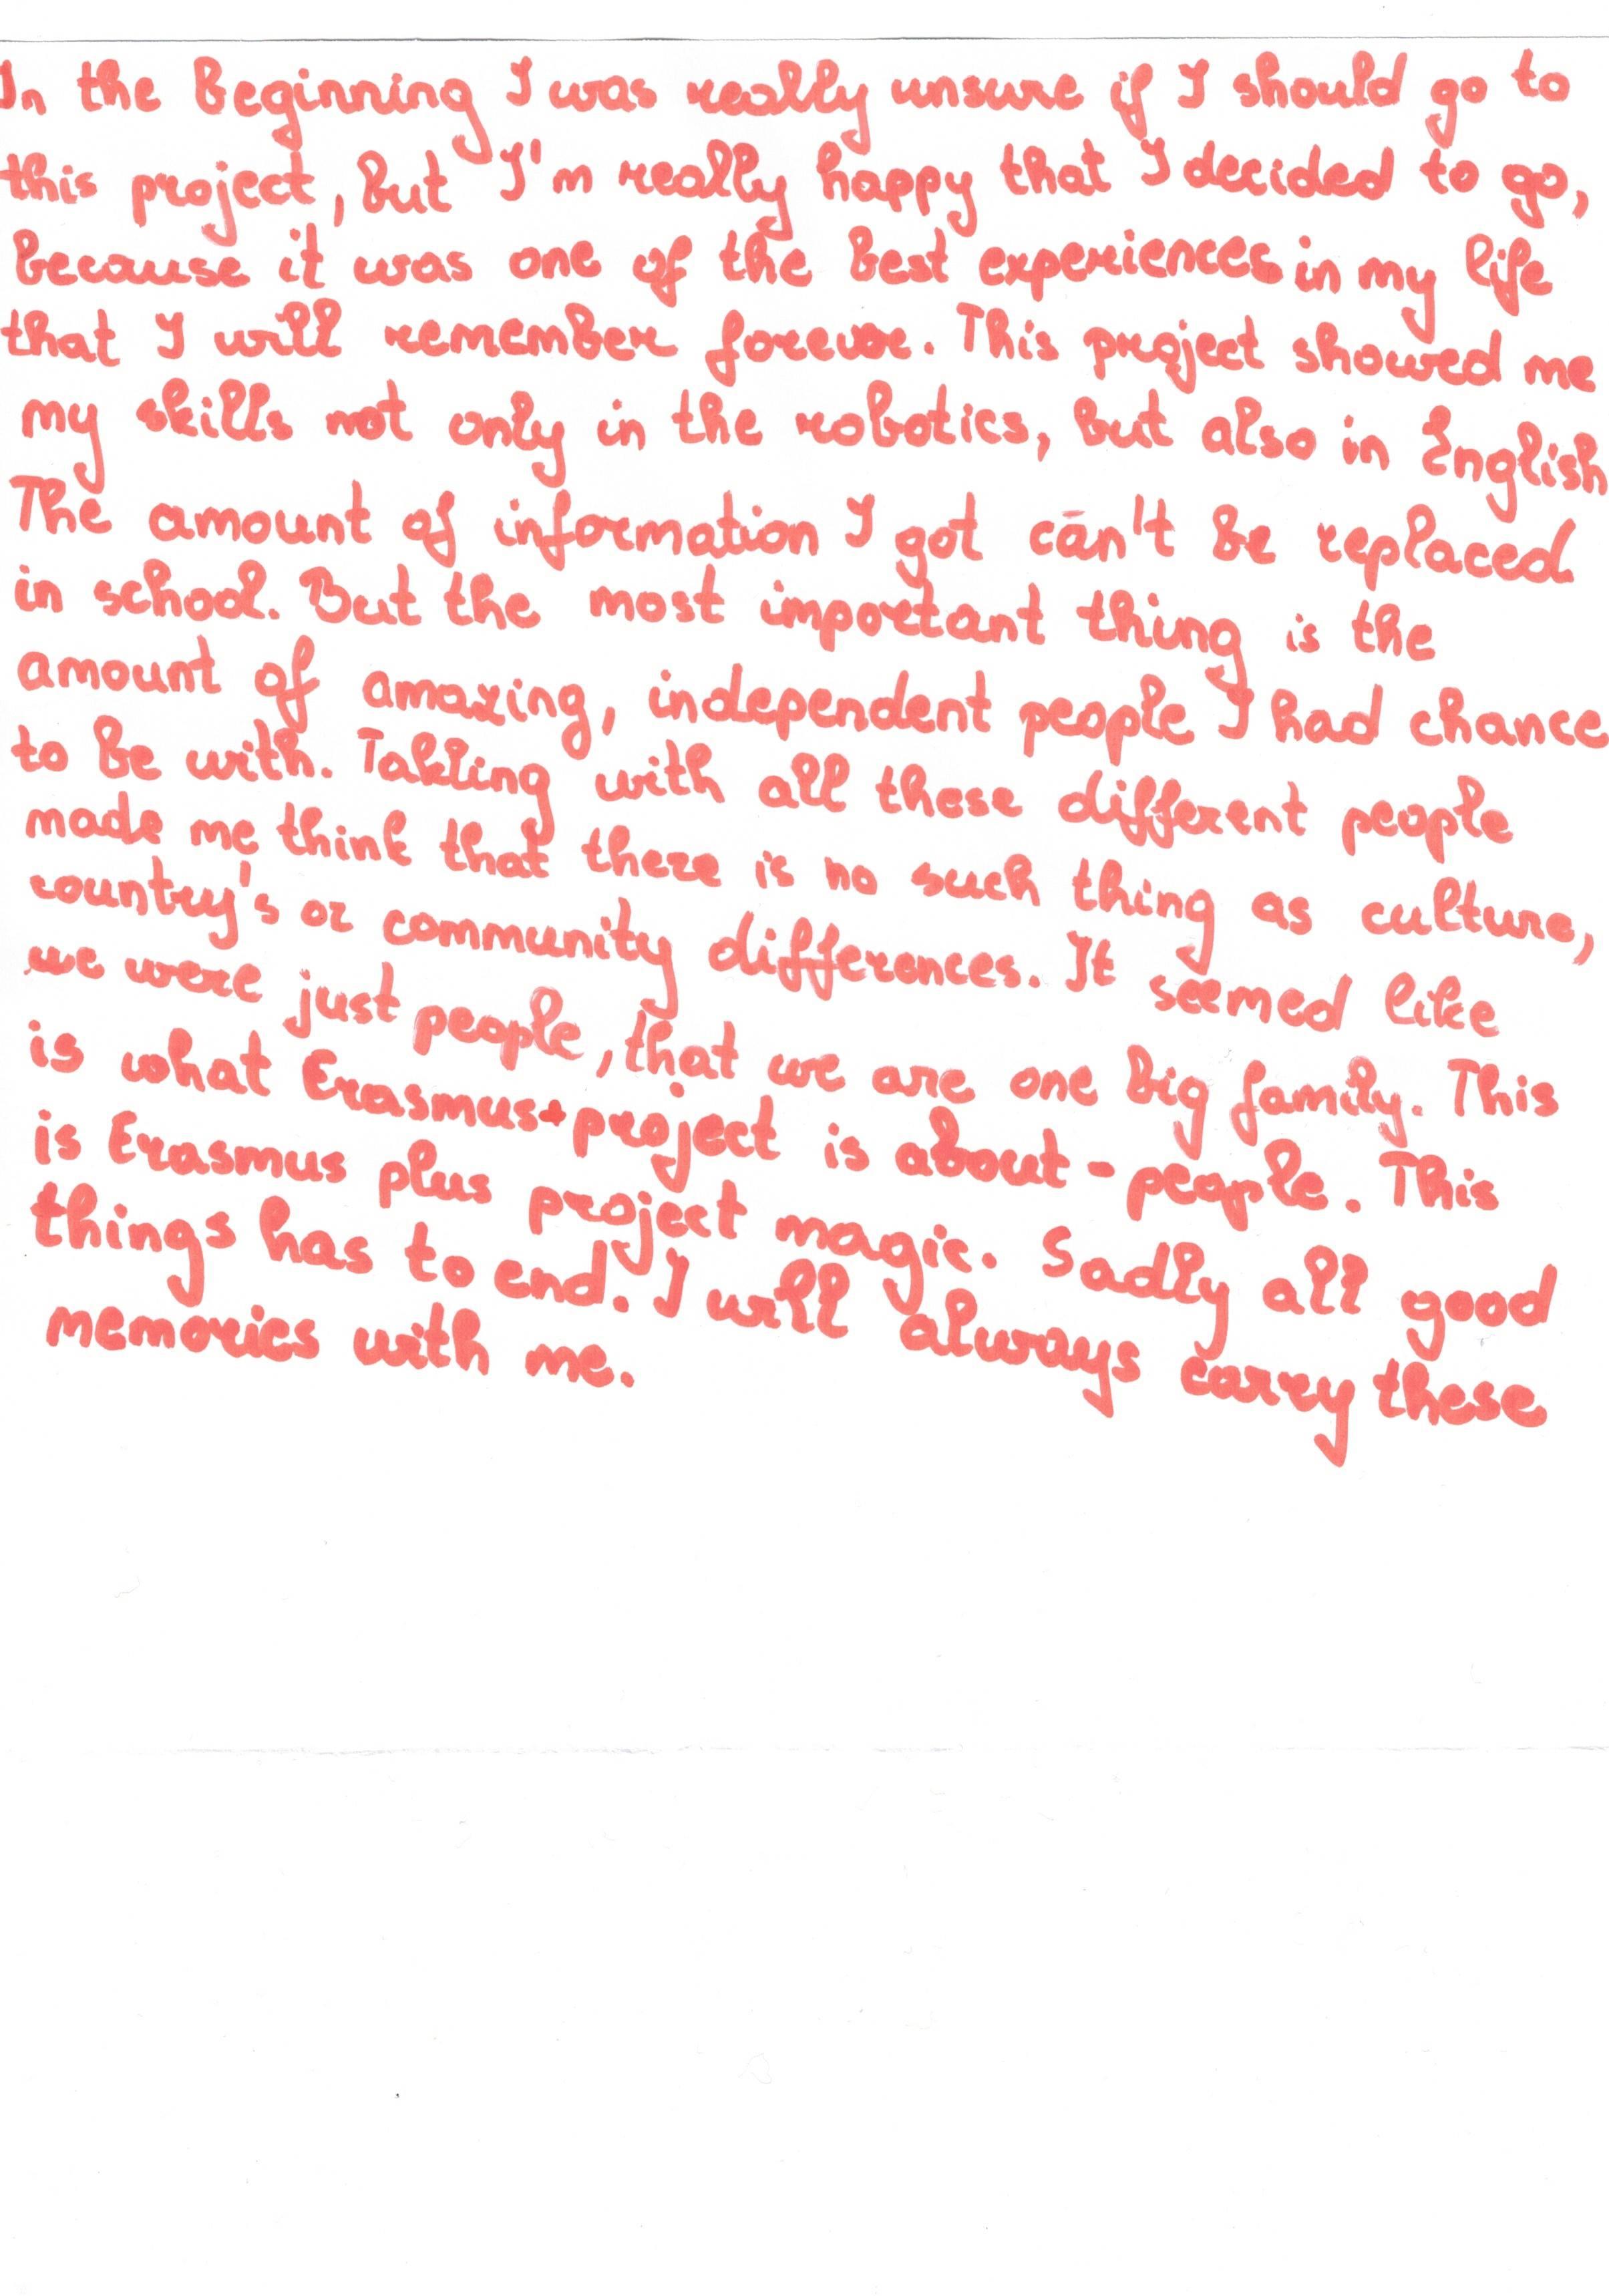 In the beginning I was really unsure if I should go to
this project, but I'm really happy that I decided to go,
because it was one of the best experiences in my life
that I will remember forever. This project showed me
my skills not only in the robotics, but also in English
The amount of information I got can't be replaced
in school. But the most important thing is the
amount of amazing, independent people I had chance
to be with. Takling with all these different people
made me think that there is no such thing as culture,
country's or community differences. It seemed like
we were just people, that we are one big family. This
is what Erasmus+ project is about - people. This
is Erasmus plus project magic. Sadly all good
things has to end. I will always carry these
memories with me.